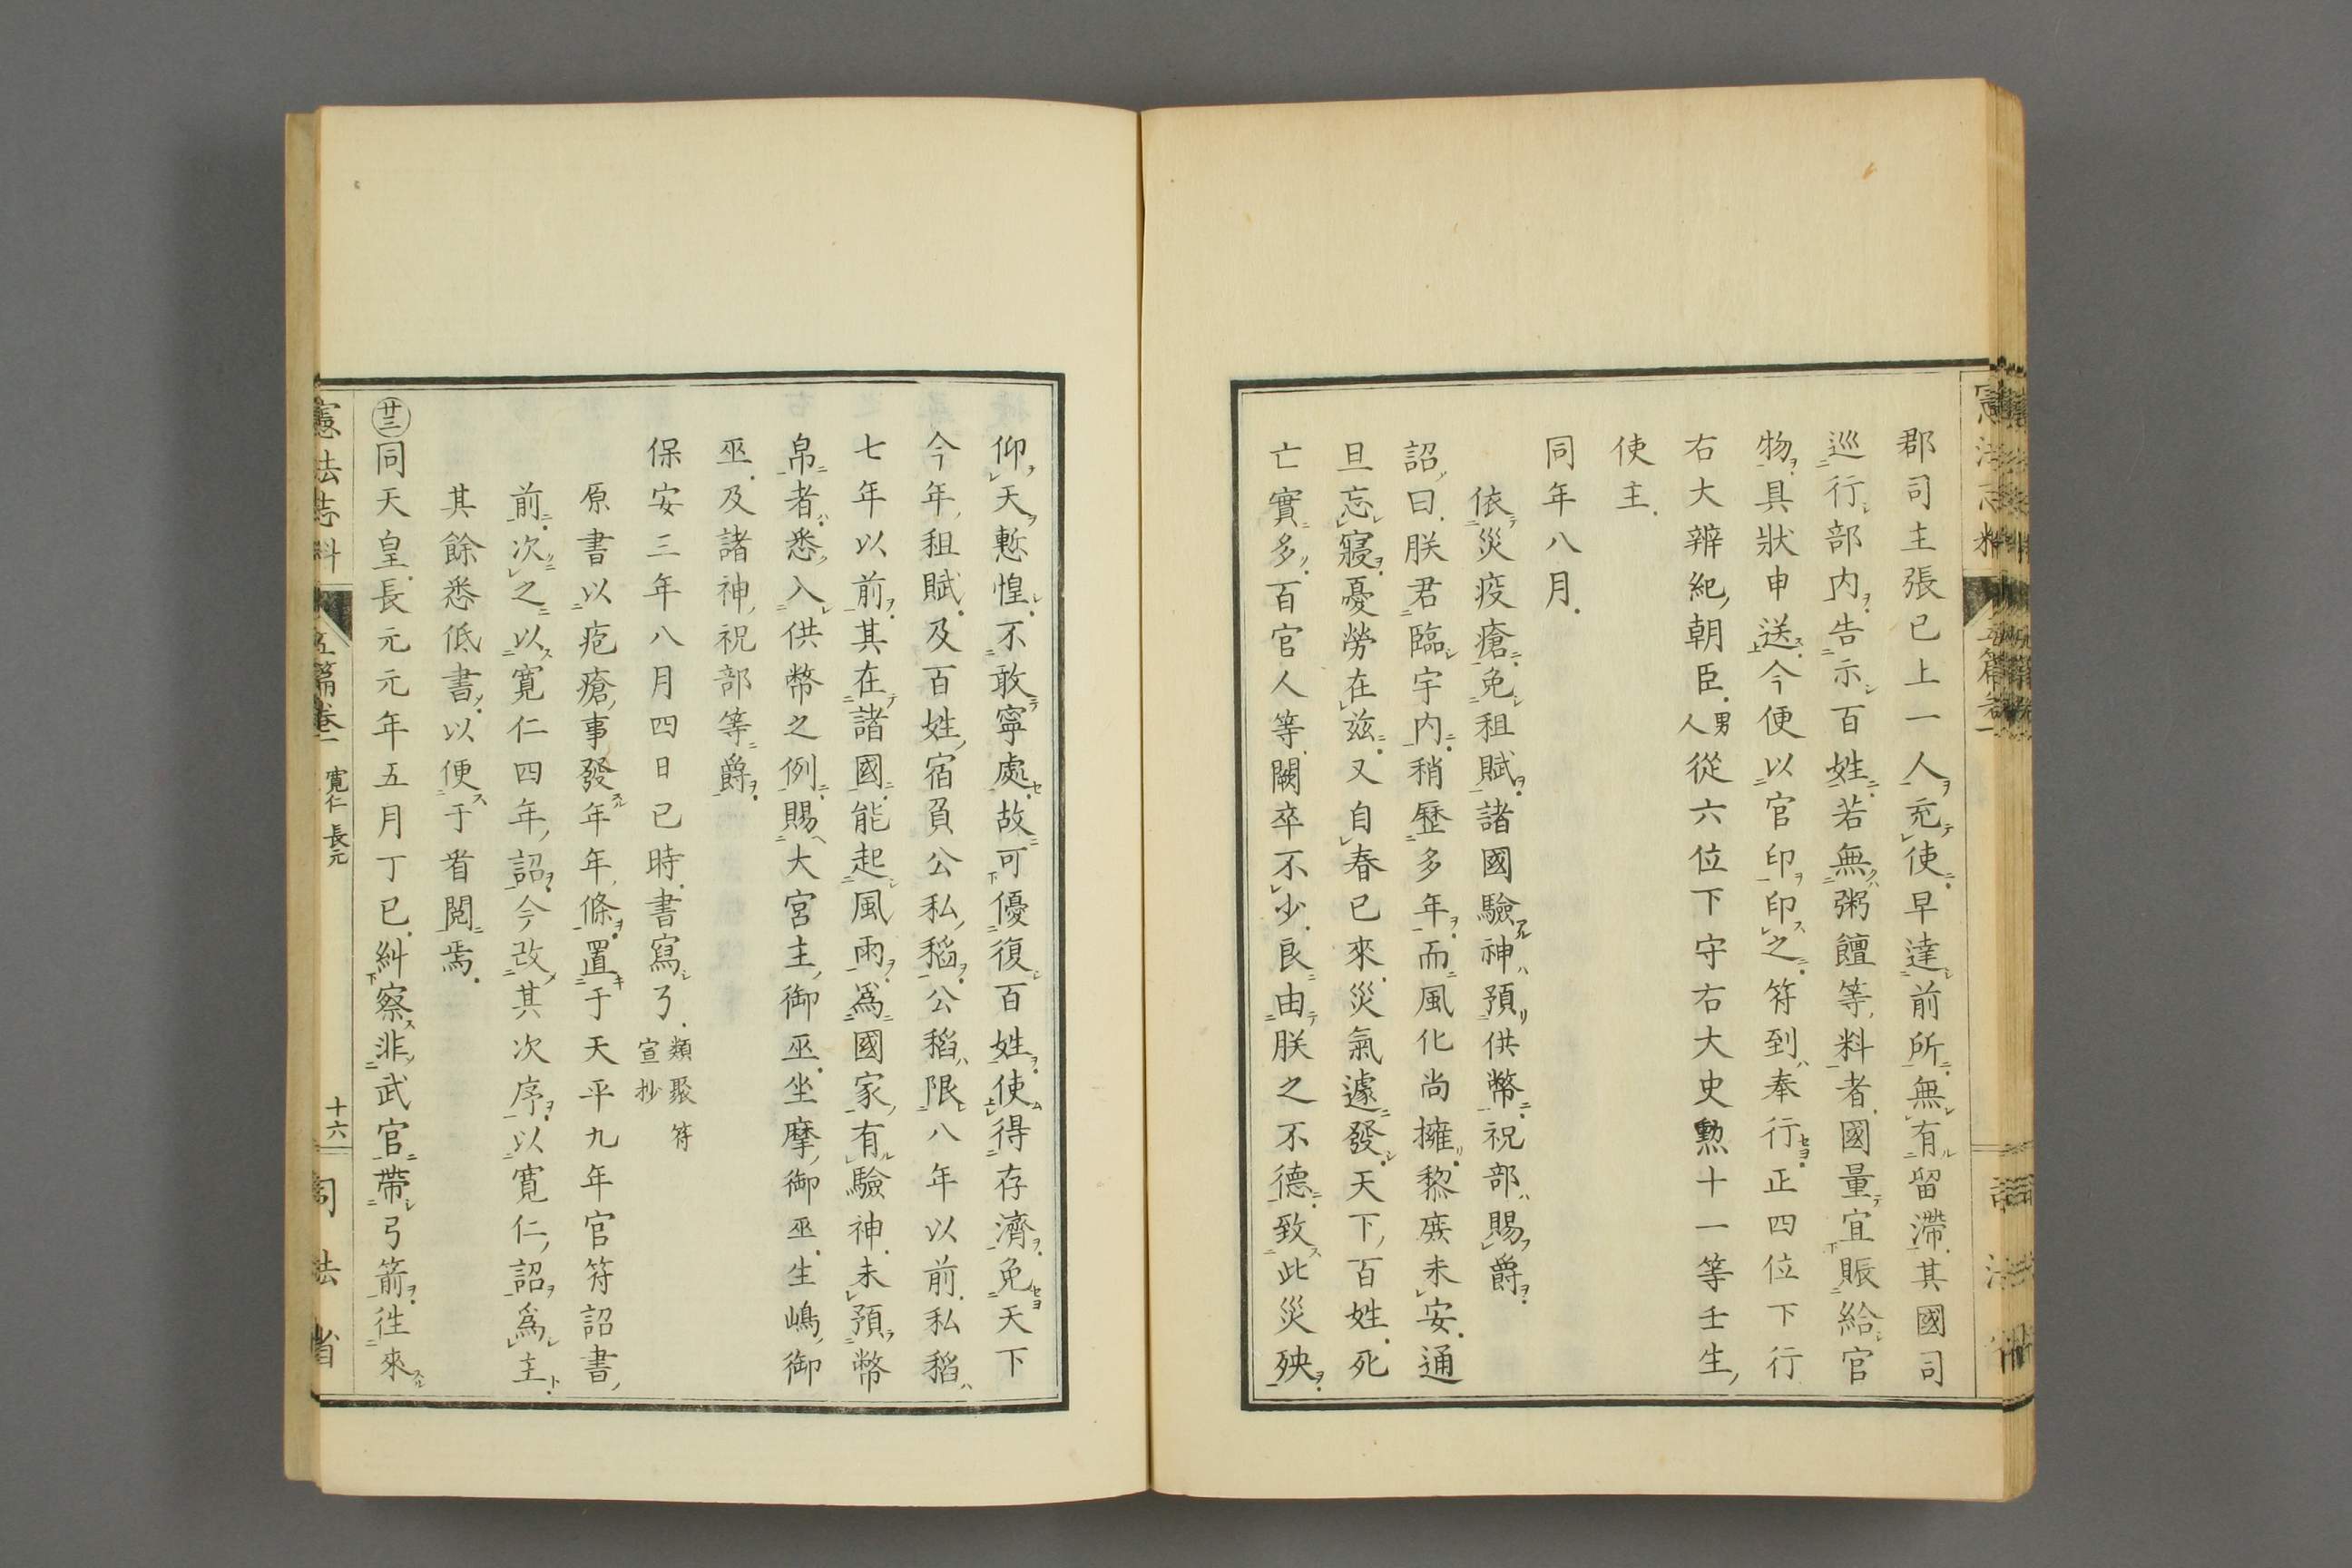 郡司主張已上一人充使早達前所無有留滯其國司
巡行部内告示百姓若無粥饘等料者國量宜賑給官
物具狀申送今便以官印印之符到奉行正四位下行
右大辨紀朝臣男人從六位下守右大史勲十一等壬生
使主
同年八月
依災疫瘡免租賦諸國驗神預供幣祝部賜爵
詔曰朕君臨宇内稍歷多年而風化尚擁黎庶未安通
旦忘寢憂勞在茲又自春已來災氣遽發天下百姓死
亡實多百官人等闕卒不少良由朕之不德致此災殃
仰天慙惶不敢寧處故可優復百姓使得存濟免天下
今年租賦及百姓宿負公私稻公稻限八年以前私稻
七年以前其在諸國能起風雨爲國家有驗神未預幣
帛者悉入供幣之例賜大宮主御巫坐摩御巫生嶋御
巫及諸神祝部等爵
保安三年八月四日巳時書寫了類聚符宣抄
原書以疱瘡事發年年條置于天平九年官符詔書
前次之以寛仁四年詔今改其次序以寛仁詔爲主
其餘悉低書以便于省閲焉
廿三同天皇長元元年五月丁巳糾察非武官帶弓箭往來
憲法志料 五篇卷一 寛仁 長元 十六 司法省